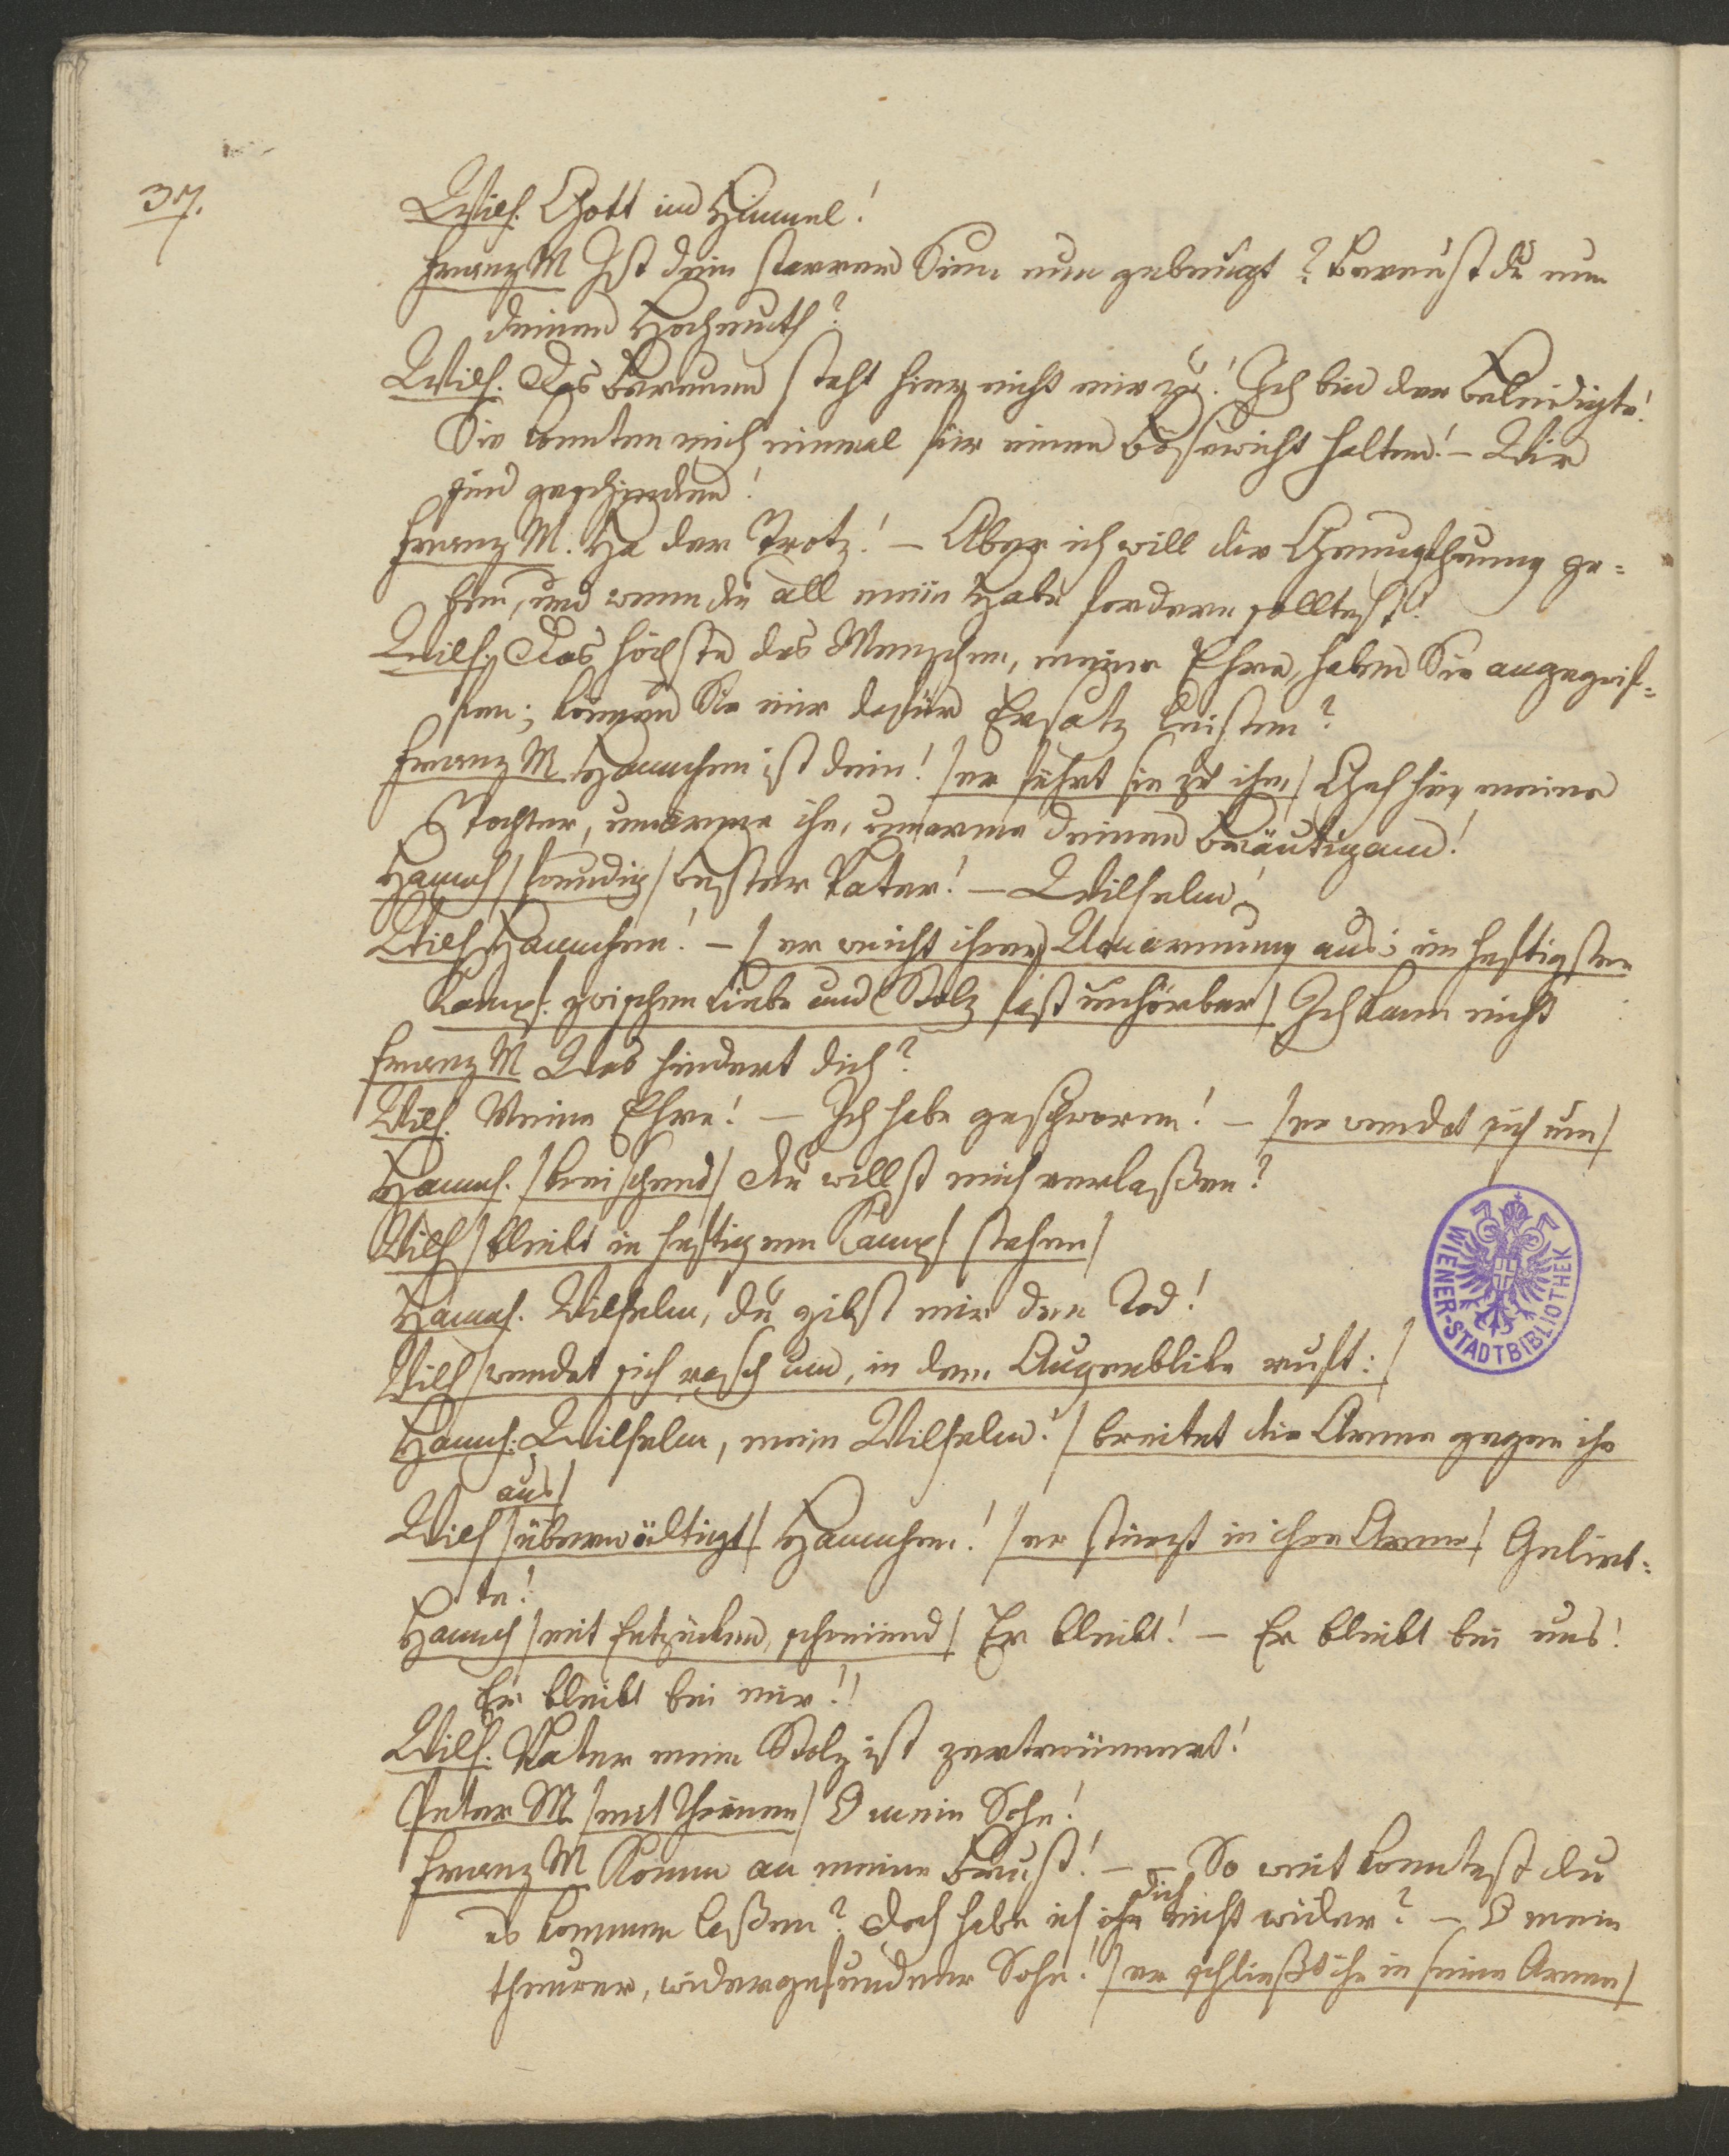 37.
Wilh. Gott im Himmel!
Franz M Ist dein starrer Sinn nun gebeugt? Bereust du nun
deinen Hochmuth?
Wilh. Das Bereuen steht hier nicht mir zu! Ich bin der Beleidigte!
Sie konnten mich einmal für einen Bösewicht halten! – Wir
sind geschieden!
Franz M. Ha der Trotz! – Aber ich will dir Genugthuung ge=
ben, und wenn du all mein Habe fordern solltest!
Wilh. Das höchste des Menschen, meine Ehre, haben Sie angegrif=
fen; können Sie mir dafür Ersatz leisten?
Franz M Hannchen ist dein! /er führt sie zu ihm/ Geh hin meine
Tochter, umarme ihn, umarme deinen Bräutigam!
Hannch /freudig/ Bester Vater! – Wilhelm!
Wilh Hannchen! – /er weicht ihrer Umarmung aus; im heftigsten
Kampf zwischen Liebe und Stolz fast unhörbar/ Ich kann nicht
Franz M Was hindert dich?
Wilh. Meine Ehre! – Ich habe geschworen! – /er wendet sich um/
Hannch. /kreischend/ Du willst mich verlaßen?
Wilh /bleibt in heftigem Kampf stehen/
Hannch. Wilhelm, du gibst mir den Tod!
Wilh /wendet sich rasch um, in dem Augenblike ruft:/
Hannch: Wilhelm, mein Wilhelm! /breitet die Arme gegen ihn
aus/
Wilh /überwältigt/ Hannchen! /er stürzt in ihre Arme/ Gelieb=
te!
Hannch /mit Entzücken, schreiend/ Er bleibt! – Er bleibt bei uns!
Er bleibt bei mir!!
Wilh. Vater mein Stolz ist zertrümmert!
Peter M /mit Thränen/ O mein Sohn!
Franz M Komm an meine Brust! – – So weit konntest du
es kommen laßen? Doch habe ich ihn dich nicht wider? – O mein
theurer, widergefundener Sohn! /er schließt ihn in seine Arme/
WIENER-STADTBIBLIOTHEK